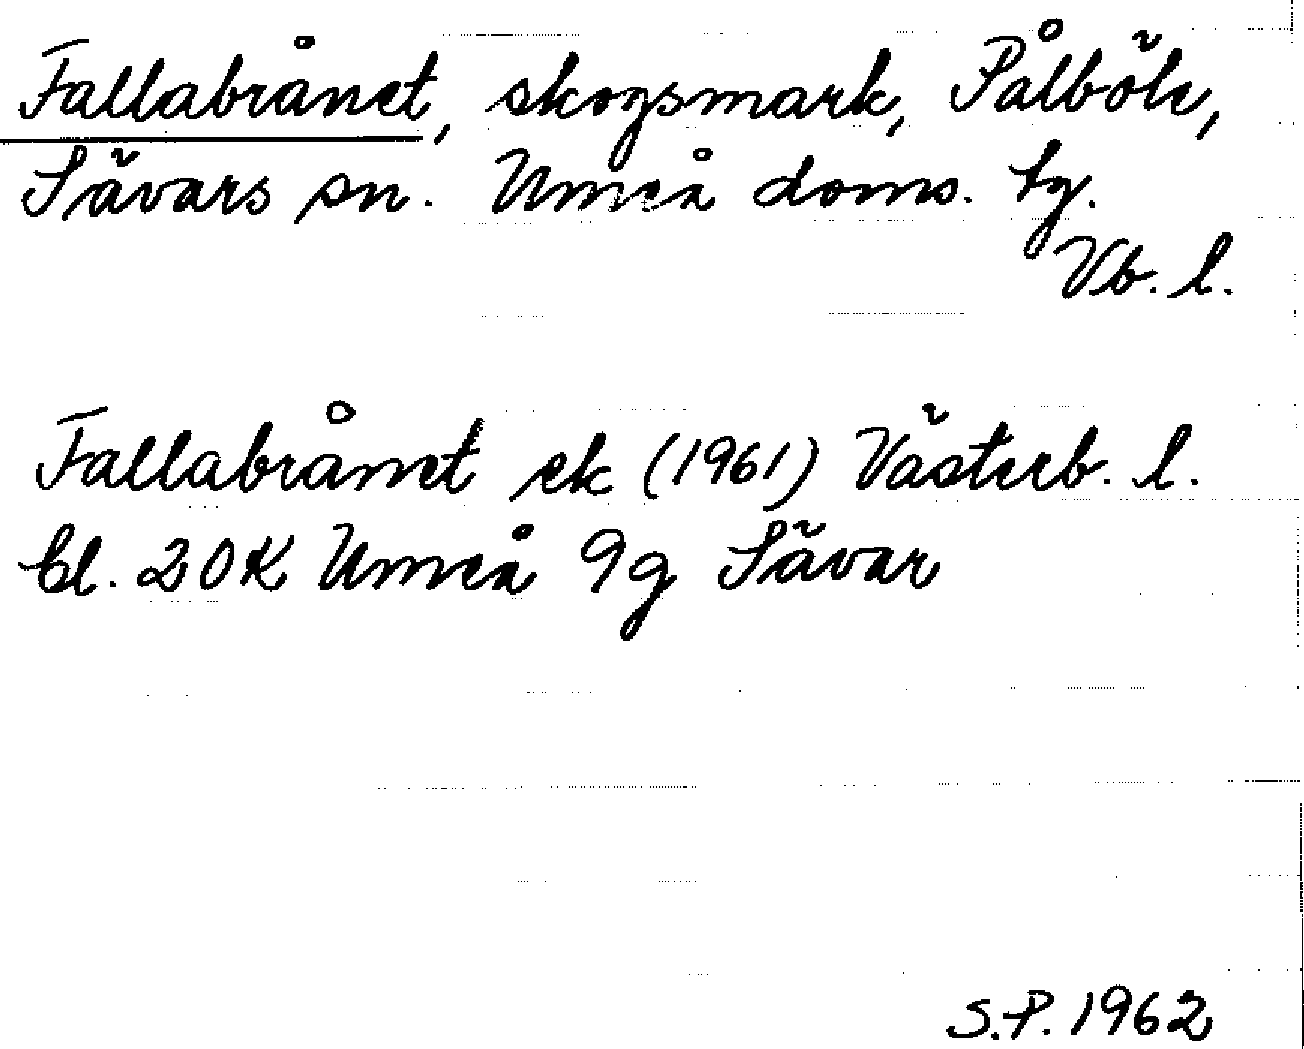 Fallabrånet, skogsmark, Pålböle,
Sävars sn. Umeå doms. tg.
Vb. l.
Fallabrånet ek (1961) Västerb. l.
bl. 20K Umeå 9g Sävar
S.P. 1962